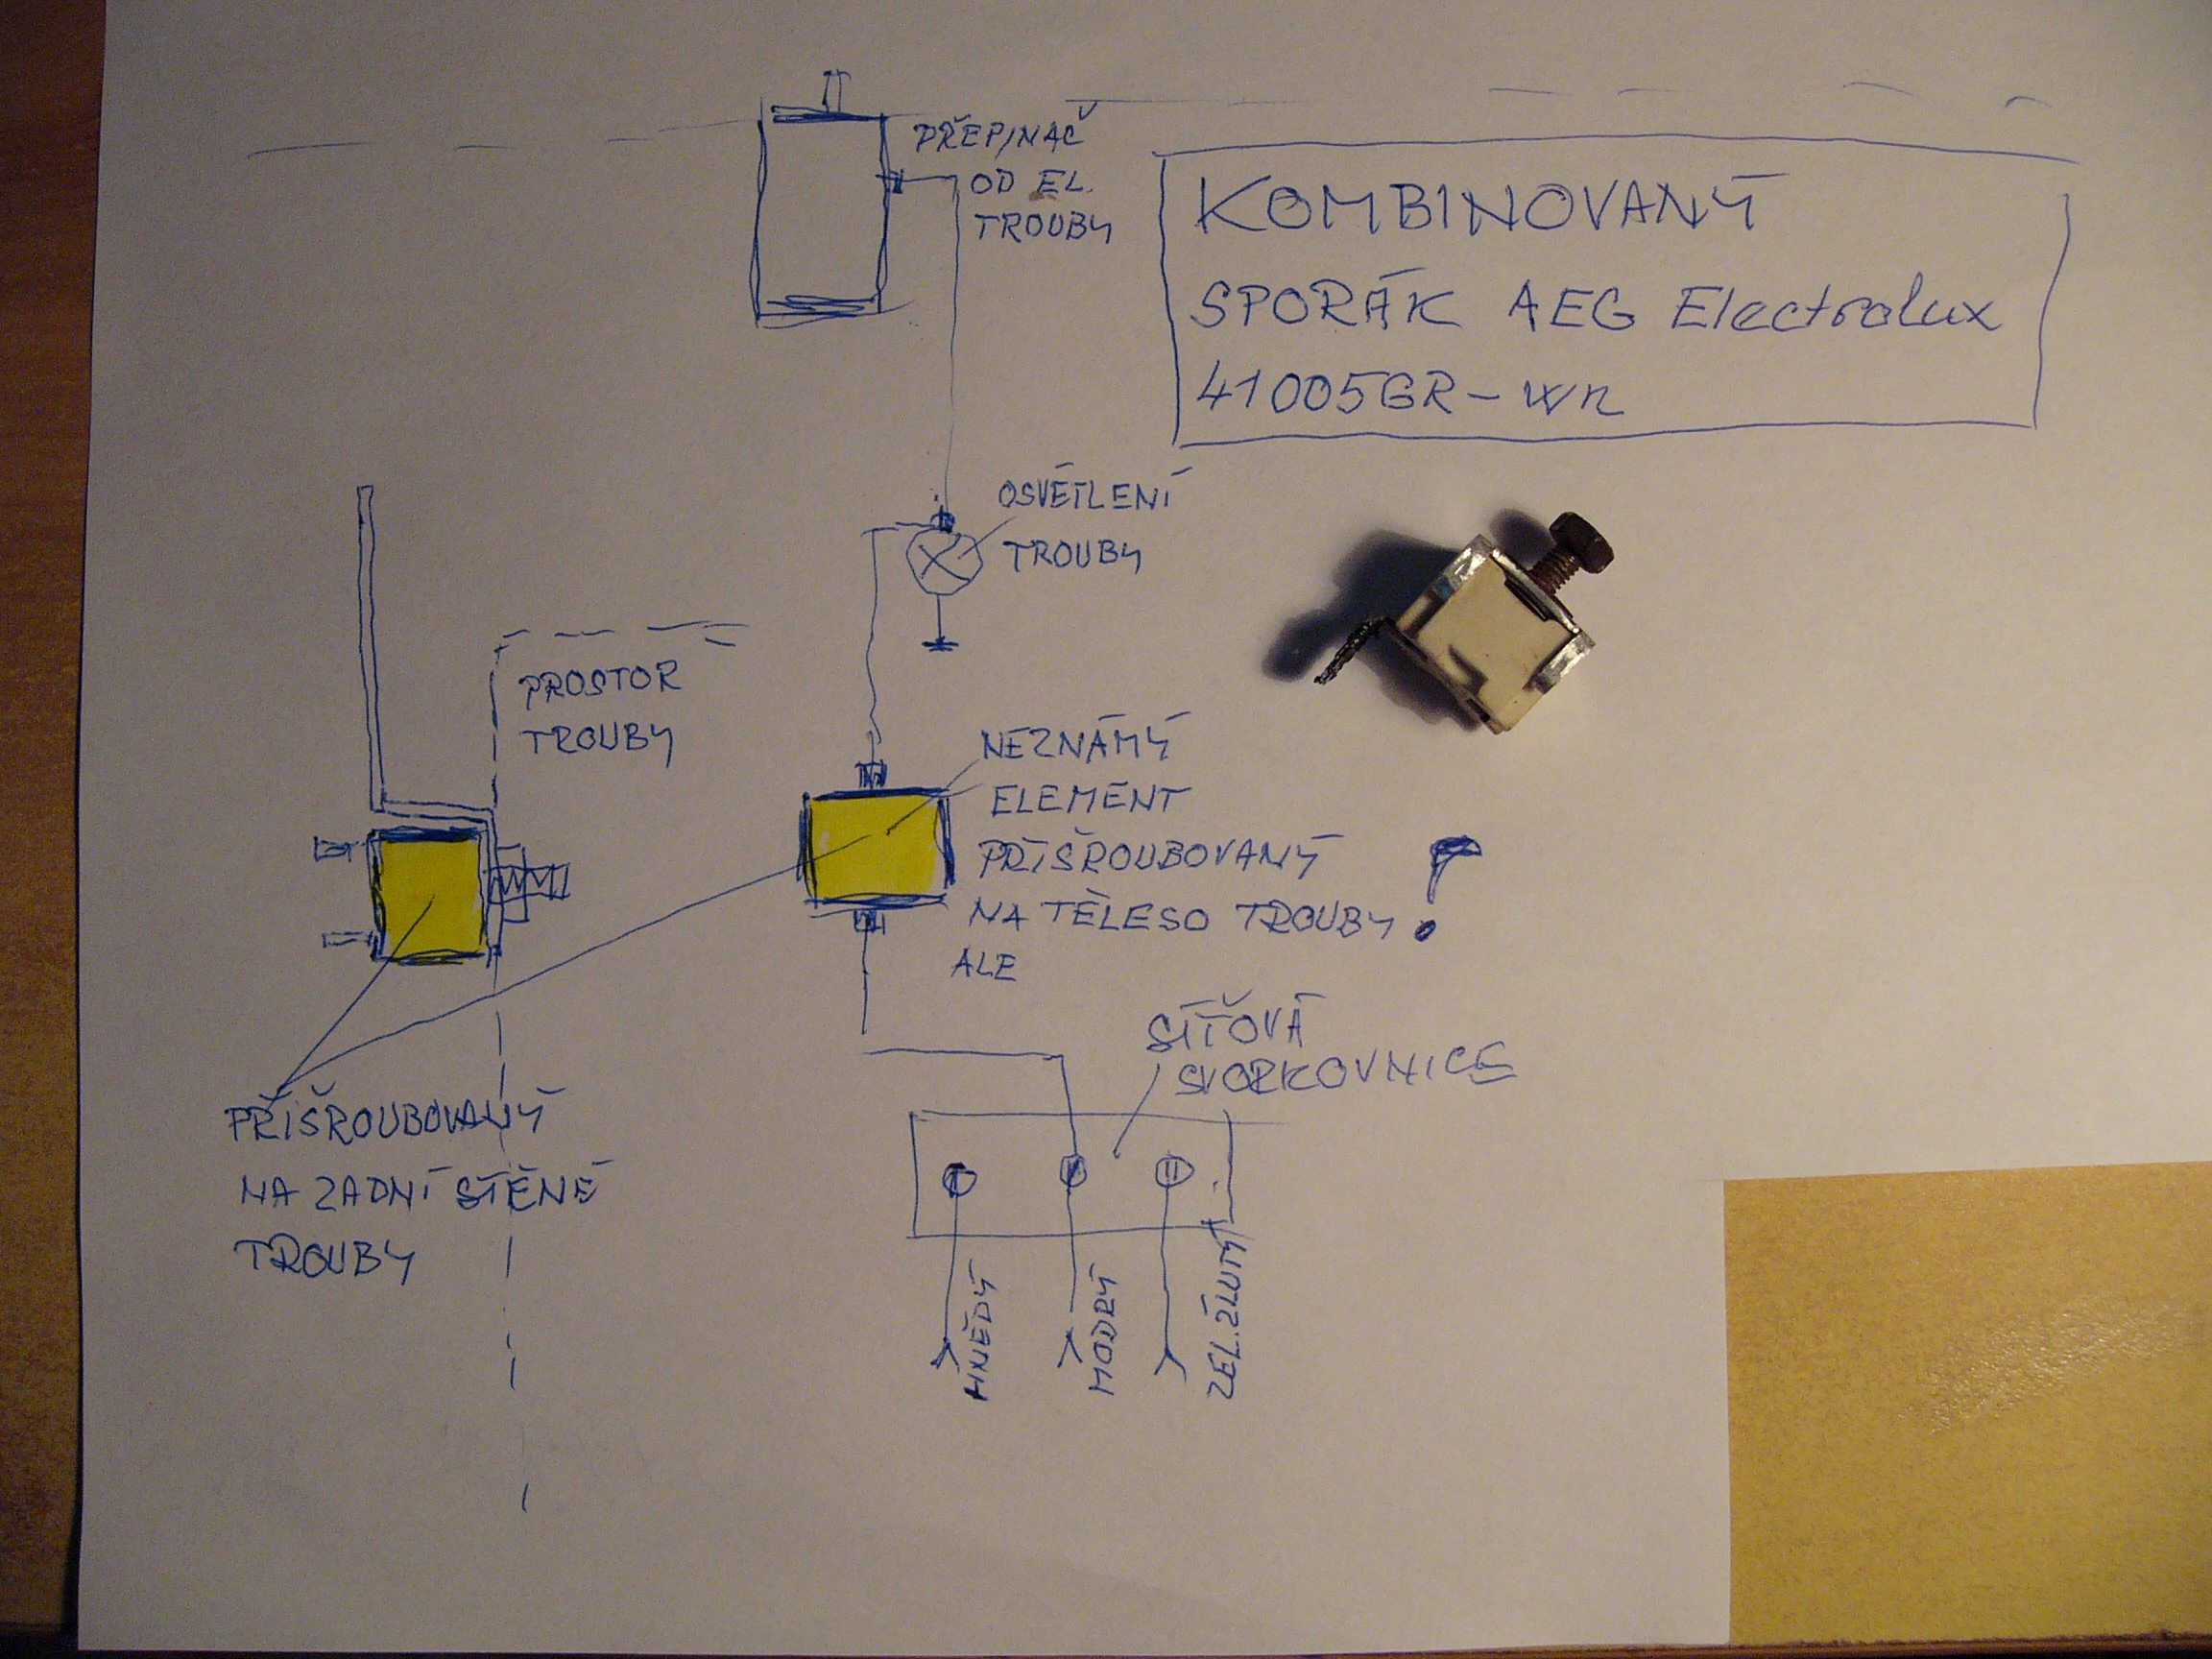 PŘEPINAČ
OD EL.
TROUBY
KOMBINOVANÝ
SPORÁK AEG Electrolux
41005GR-wn
OSVĚTLENÍ
TROUBY
PROSTOR
TROUBY
NEZNÁMÝ
ELEMENT
PŘIŠROUBOVANÝ
NA TĚLESO TROUBY
ALE
SÍŤOVÁ
SVORKOVNICE
PŘIŠROUBOVANÝ
NA ZADNÍ STĚNĚ
TROUBY
HNĚDÝ
MODRÝ
ZEL.ŽLUTÝ